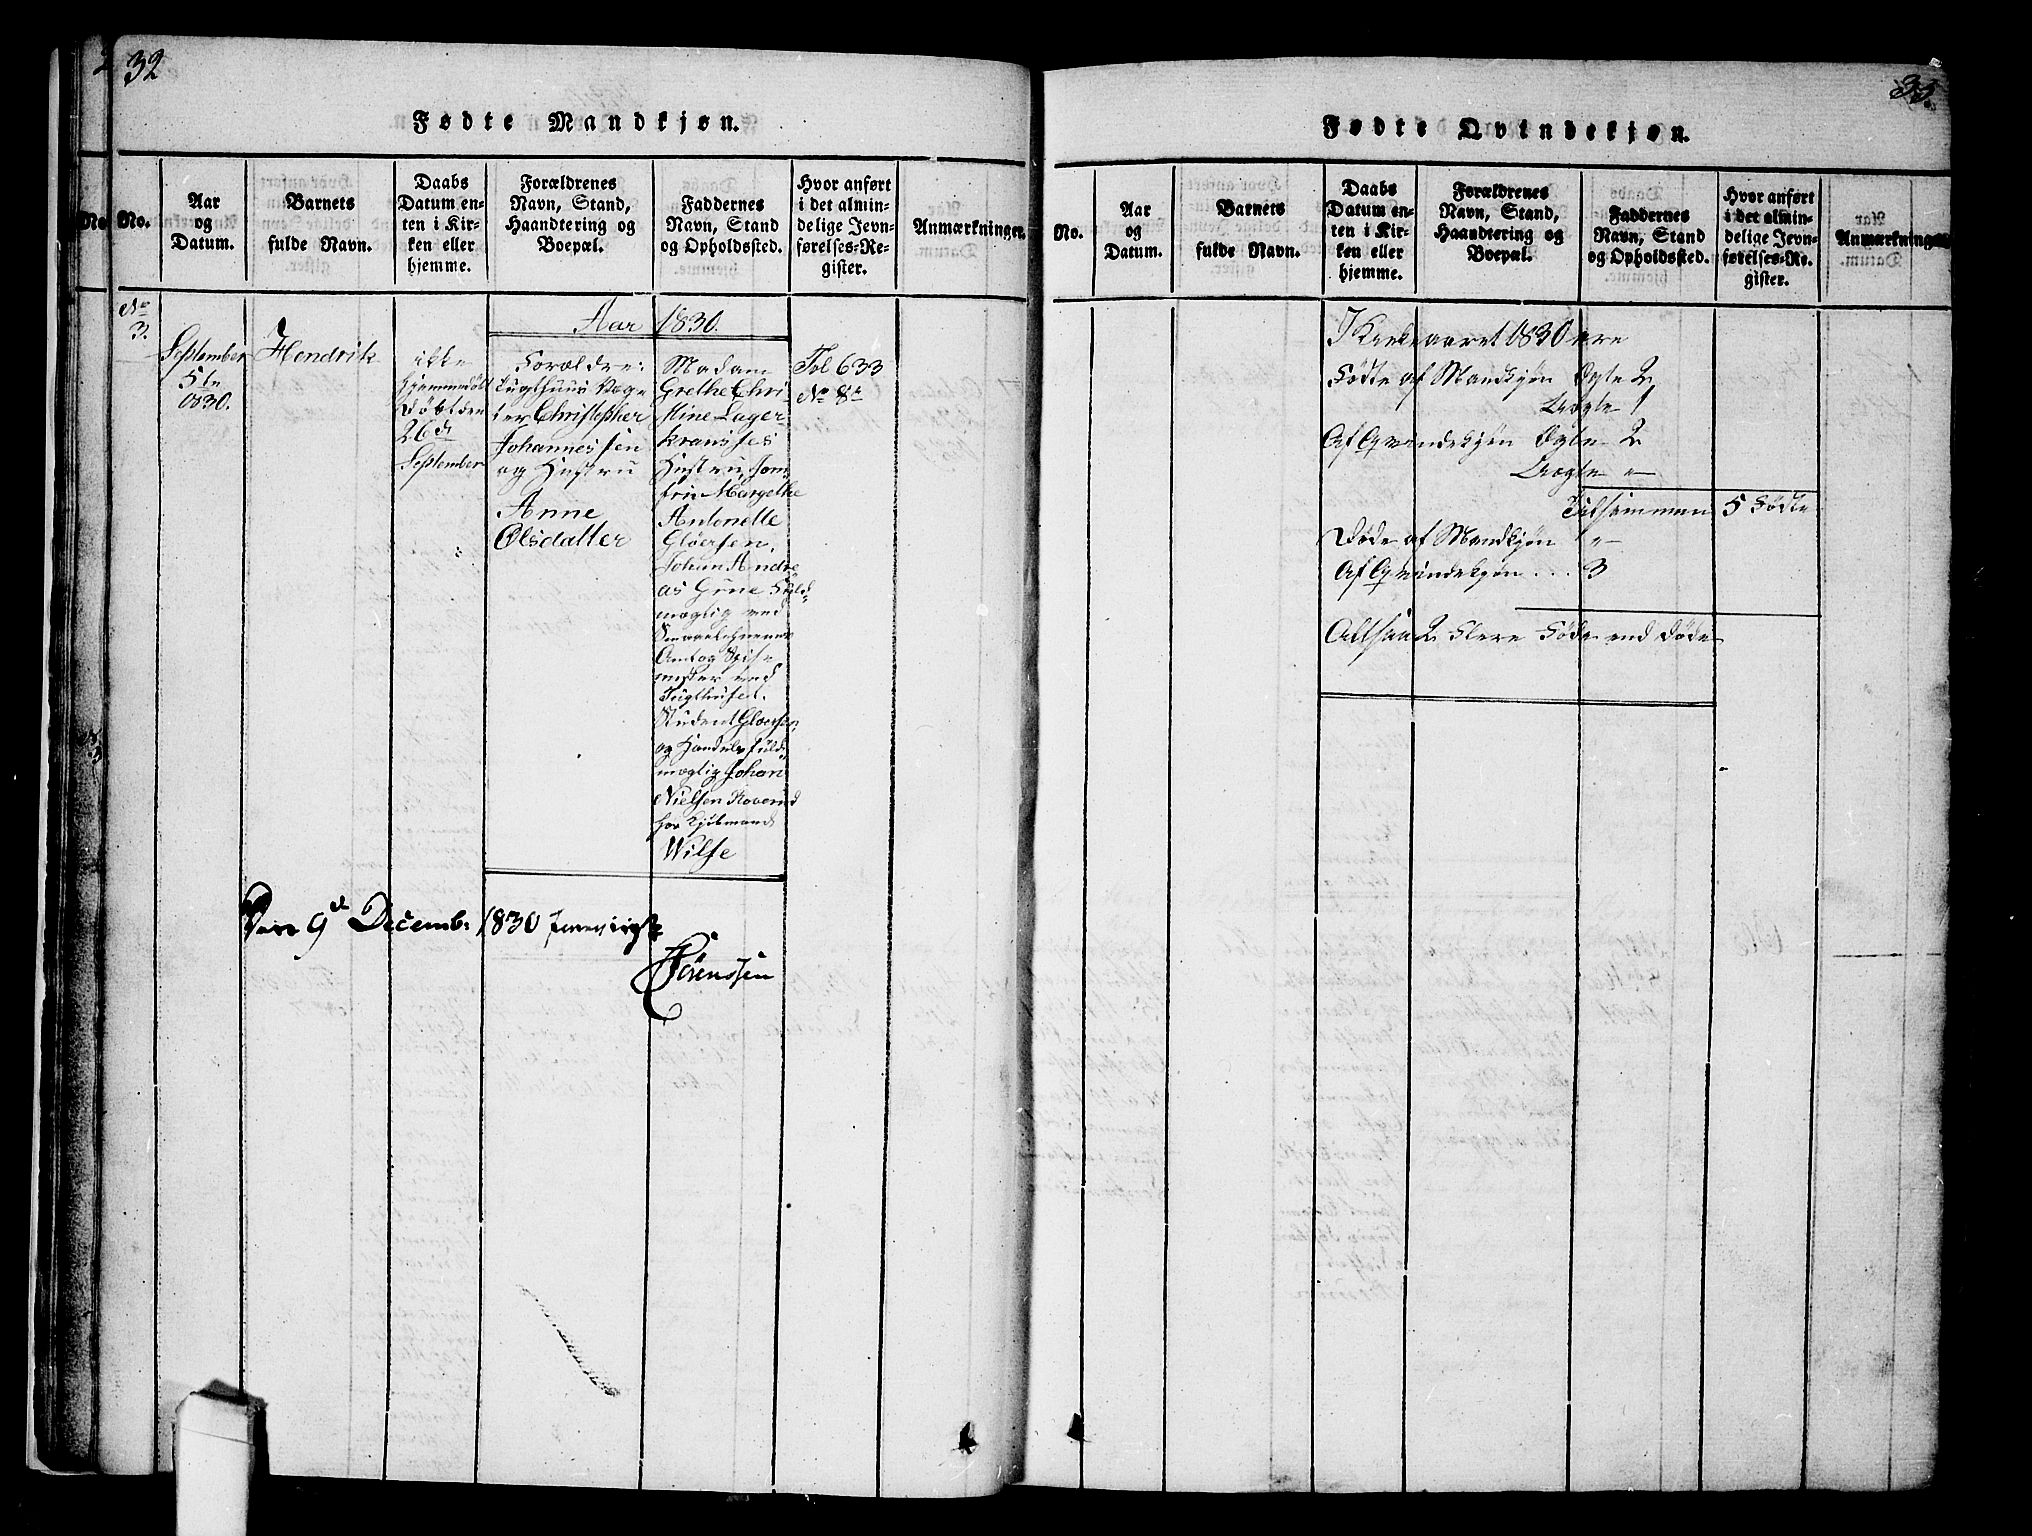 32
Fødte Mandkjøn.
No.
Aar
og
Datum.
Barnets
fulde Navn.
Daabs
Datum en-
ten i Kir-
ken eller
hjemme.
Forældrenes
Navn, Stand,
Haandtering og
Boepæl.
Faddernes
Navn, Stand
og Opholdssted.
Hvor anført
i det almin-
delige Jevn-
førelses-Re-
gister.
Anmærkninger.
Aar 1830.
No
3.
September
5te
1830.
Hendrik
ikke
hjemmedöbt
Döbt den
26de
September
Forældre:
Tugthuus Vag-
ter Christopher
Johannessen
og Hustru
Anne
Olsdatter
Madam
Grethe Chri-
stine Lager-
kransses
Hustru, Jom-
fru Margethe
Antonette
Glöersen,
Johan Andre
as Grue Fuld-
mægtig ved
Smaalehnenes
Amt og Spise-
mester ved
Tugthuset.
Student Gloersen
og Handels fuld-
mægtig Johan
Nielsen Roverud
hos Kjöbmand
Wilse
Fol 633
No 8de
Den 9d Decemb: 1830
Sörenssen
33.
Fødte Qvindekjøn.
No.
Aar
og
Datum.
Barnets
fulde Navn.
Daabs
Datum en-
ten i Kir-
ken eller
hjemme.
Forældrenes
Navn, Stand,
Haandtering og
Boepæl.
Faddernes
Navn, Stand
og Opholdssted.
Hvor anført
i det almin-
delige Jevn-
førelses-Re-
gister.
Anmærkninger
I Kirkeaaret 1830 ere
Födte af Mandkjön Ægte 2
Uægte 1
Af Qvindekjön Ægte 2
Uægte "
Tilsammen 5 Födte
Döde af Mandkjön "
Af Qvindekjön . . . 3
Altsaa 2 Flere Födte end Döde